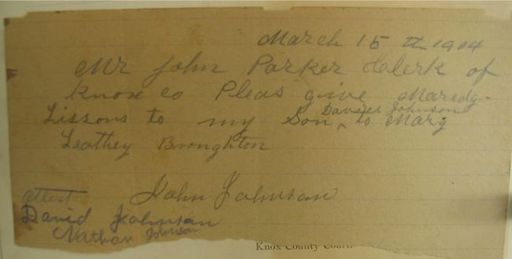 March 15th 1904
Mr John Parker Clerk of
Knox co Pleas give Maredg-
Lissons to my Son Daniel Johnson to Mary
Leathey Broughton
John Johnson
Attest
David Johnson
Nathan Johnson
Knox County Court